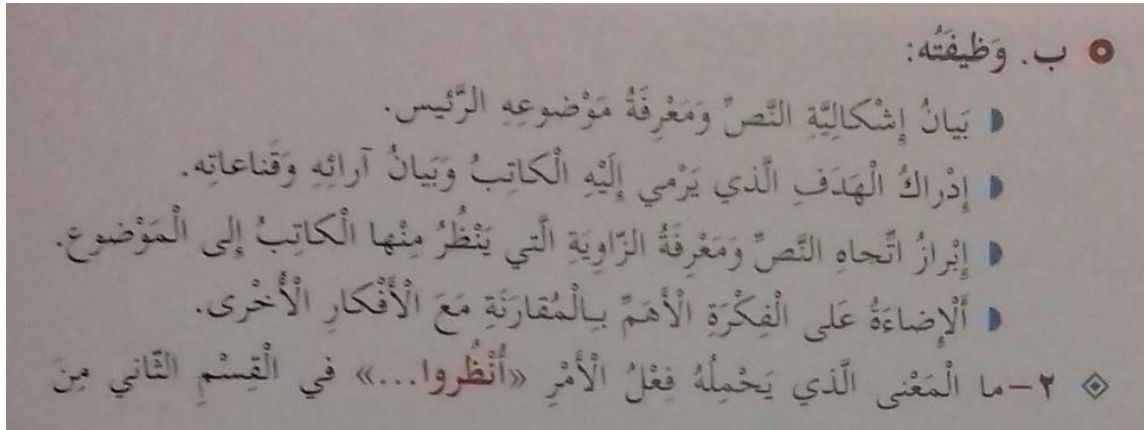 ب. وَظيفَتُه:
بَيانُ إِشْكالِيَّةِ النَّصِّ وَمَعْرِفَةُ مَوْضوعِهِ الرَّئيس.
إِدْراكُ الْهَدَفِ الَّذي يَرْمي إِلَيْهِ الْكاتِبُ وَبَيانُ آرائِهِ وَقَناعاتِه.
إِبْرازُ اتِّجاهِ النَّصِّ وَمَعْرِفَةُ الزّاوِيَةِ الَّتي يَنْظُرُ مِنْها الْكاتِبُ إِلى الْمَوْضوع.
أَلْإِضاءَةُ عَلى الْفِكْرَةِ الْأَهَمِّ بِالْمُقارَنَةِ مَعَ الْأَفْكارِ الْأُخْرى.
٢- ما الْمَعْنى الَّذي يَحْمِلُهُ فِعْلُ الْأَمْرِ «أُنْظُروا...» في الْقِسْمِ الثّاني مِنَ